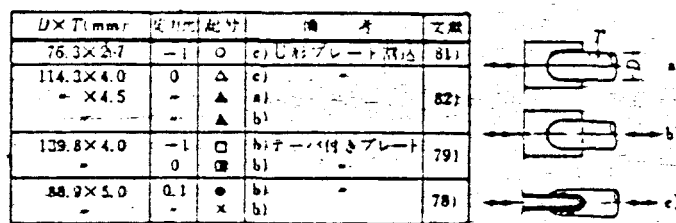 D×T(mm) 応力比 記号 備考 文献
76.3×2.7 -1 ○ c) U形プレート割込 81)
114.3×4.0 0 △ c) 〃
〃 ×4.5 〃 ▲ a) 82)
〃 〃 ▲ b)
139.8×4.0 -1 □ b) テーパ付きプレート 79)
〃 0 b) 〃
88.9×5.0 0.1 ● b) 〃 78)
〃 〃 × b)
T
D
a
b)
c)